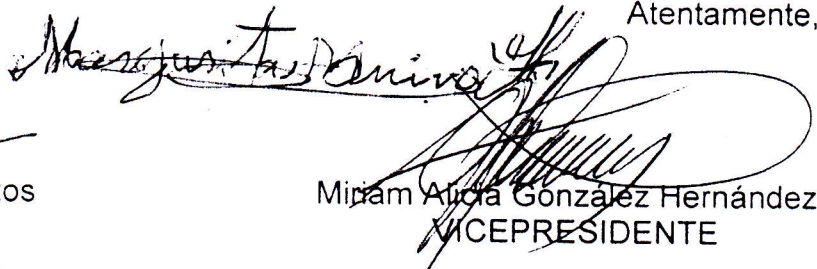 Atentamente,
Margarita
tos
Miriam Alicia González Hernández
VICEPRESIDENTE